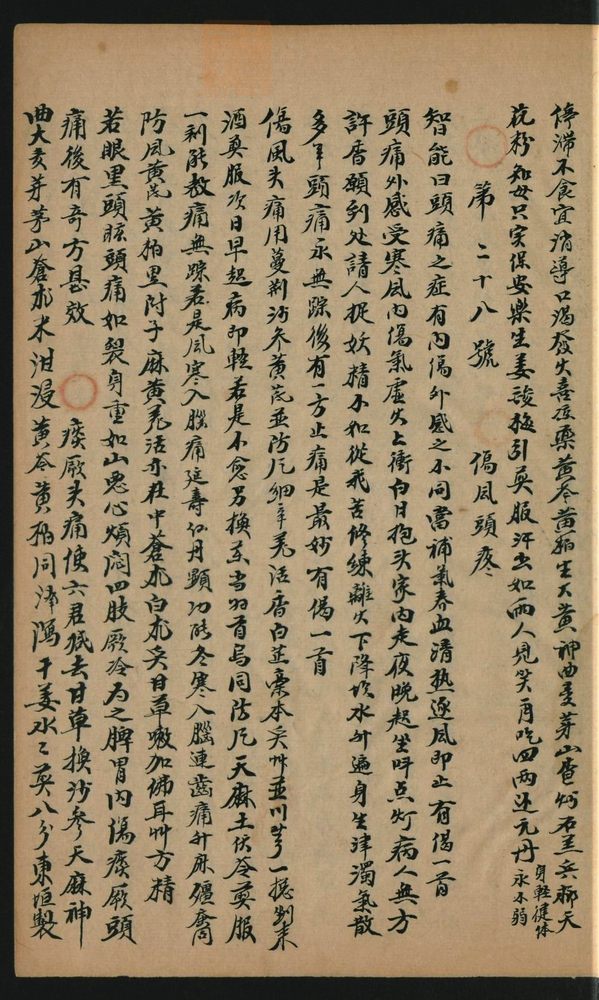 停滞不食宜消導口渴發火喜凉藥黃芩黃柏生大黃神曲麦芽山查炒石羔兵郎天
花粉知母只实保安樂生姜酸梅引煎服汗出如雨人見笑再吃四兩还元丹身輕健体永不弱
第二十八號 傷風頭疼
智能曰頭痛之症有內傷外感之不同當補氣养血清熱逐風即止有偈一首
頭痛外感受寒風內傷氣虛火上衝白日抱头家內走夜晚起坐呼点灯病人無方
許香願到处請人捉妖精不如從我苦修練離火下降坎水升遍身生津濁氣散
多年頭痛永無踪後有一方止痛是最妙有偈一首
傷風头痛用蔓荆沙参黃芪並防风細辛羌活香白芷藁本炙艸並川芎一提割来
酒煎服次日早起病即輕若是不愈另換东当归首烏同防风天麻土伏苓煎服
一剂能教痛無踪若是風寒入腦痛延壽仙丹顯功能冬寒入腦連齒痛升麻殭蚕
防風黃芪黃柏里附子麻黃羌活亦在中蒼朮白朮炙甘草嗽加佛耳艸方精
若眼黑頭眩頭痛如裂身重如山恶心煩悶四肢厥冷為之脾胃內傷痰厥頭
痛後有奇方甚效 痰厥头痛使六君抵去甘草換沙参天麻神
曲大麦芽茅山蒼朮米泔浸黃芩黃柏同泽瀉干姜水二煎八分東垣製